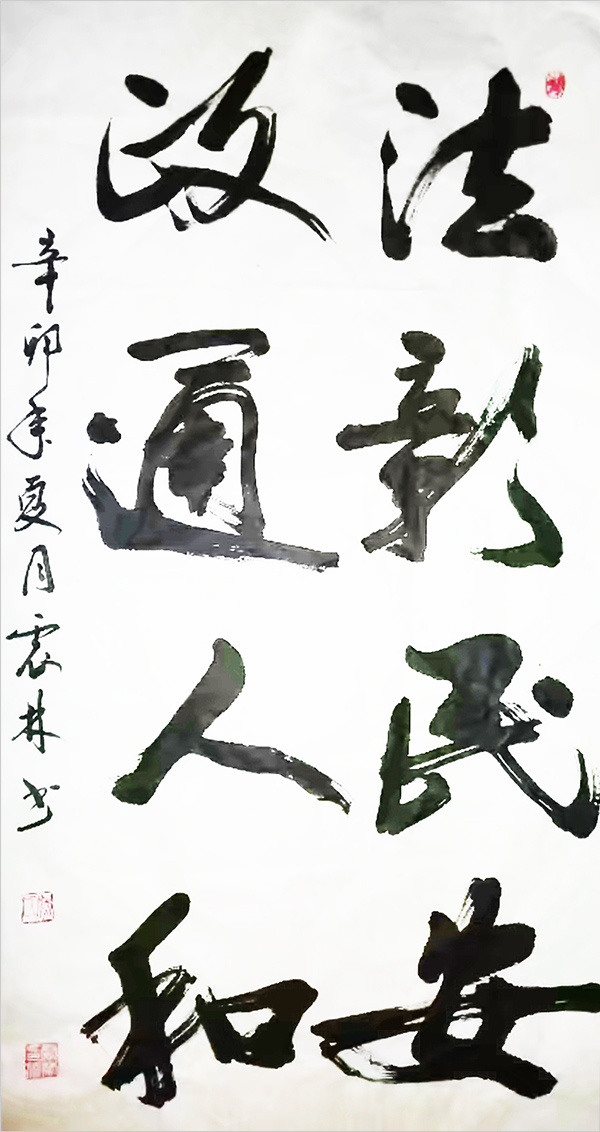 法彰民安
政通人和
辛卯年夏月震林书